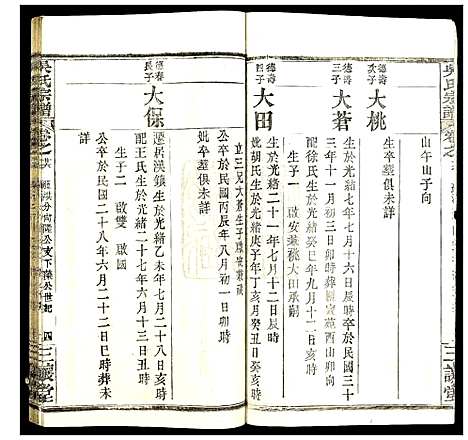 吳氏宗譜
山午山子向
德壽次子
大桃
生於光緒七年十二月十六日辰時卒於民國三十
三年十一月初三日卯時葬
西山卯時
德壽三子
大蒼
徐氏生於光緒癸巳年九月十二日亥時
生子一 啟安兼祧大田承嗣
德壽四子
大田
生於光緒二十一年七月十二日辰時
妣胡氏生於光緒庚子年丁亥月癸丑日癸亥時
妣卒墓俱未詳
立三兄大蒼生子啟安兼祧
公卒於民國丙辰年八月初一日卯時
德春長子
大保
遷居漢鎮生於光緒乙未年七月十一日亥時
配王氏生於光緒二十七年六月十三日丑時
生子二 啟雙 啟國
公卒於民國二十八年六月二十二日巳時葬未
詳
吳氏宗譜
卷之
公支下
公世紀
四
三讓堂
三讓堂